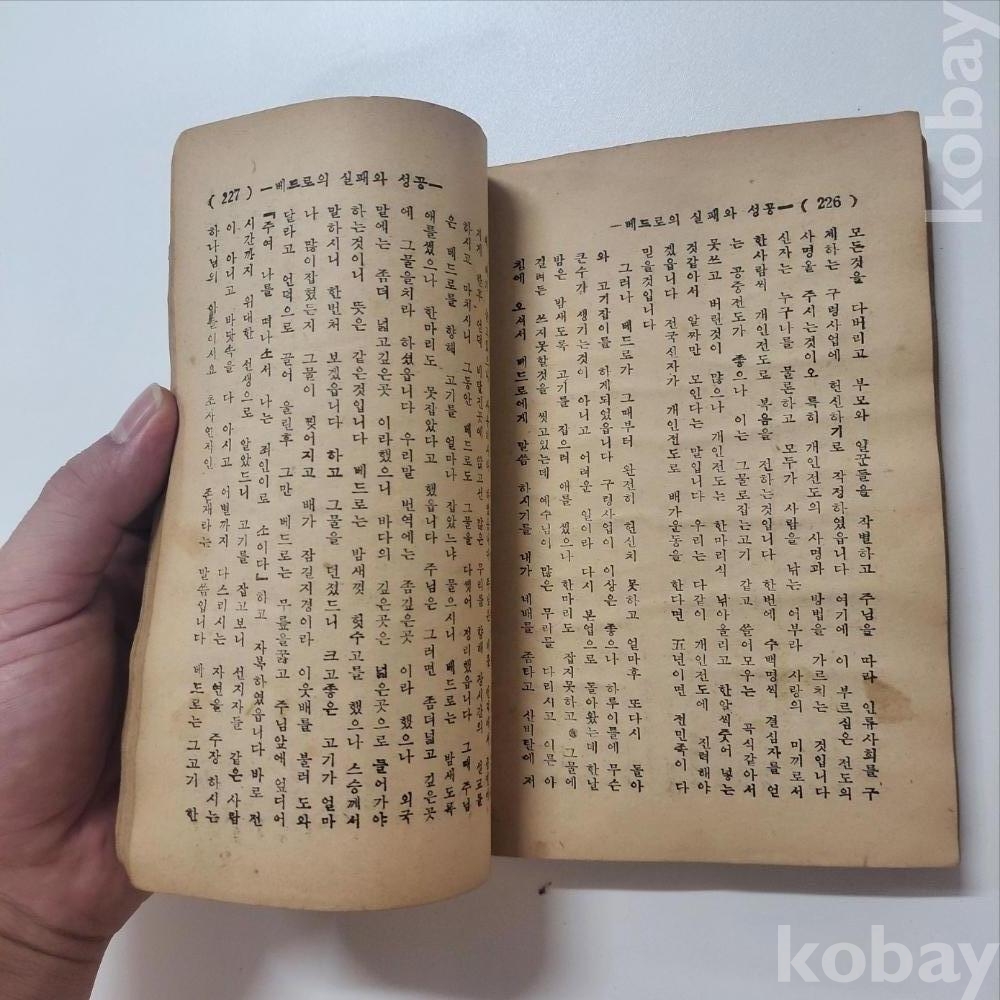 —베드로의 실패와 성공— ( 226 )
모든것을 다버리고 부모와 일꾼들을 작별하고 주님을 따라 인류사회를 구
제하는 구령사업에 헌신하기로 작정하였읍니다 여기에 이 부르심은 전도의
사명을 주시는것이오 특히 개인전도의 사명과 방법을 가르치는 것입니다
신자는 누구나를 물론하고 모두가 사람을 낚는 어부라 사랑의 미끼로서
한사람씩 개인전도로 복음을 전하는것입니다 한번에 수백명씩 결심자를 얻
는 공중전도가 좋으나 이는 그물로잡는고기 같고 쓸어모우는 곡식같아서
못쓰고 버린것이 많으나 개인전도는 한마리식 낚아올리고 한알씩줏어 넣는
것같아서 알짜만 모인다는 말입니다 우리는 다같이 개인전도에 진력해야
겠읍니다 전국신자가 개인전도로 배가운동을 한다면 五년이면 전민족이 다
믿을것입니다
그러나 베드로가 그때부터 완전히 헌신치 못하고 얼마후 또다시 돌아
와 고기잡이를 하게되었읍니다 구령사업이 이상은 좋으나 하루이틀에 무슨
큰수가 생기는것이 아니고 어려운 일이라 다시 본업으로 돌아왔는데 한날
밤은 밤새도록 고기를 잡으려 애를 썼으나 한마리도 잡지못하고 그물에
걸려든 쓰지못할것을 씻고있는데 예수님이 많은 무리를 다리시고 이른 아
침에 오셔서 베드로에게 말씀 하시기를 내가 네배를 좀타고 산비탈에 저
( 227 ) —베드로의 실패와 성공—
하시고 마치시니 그동안 베드로도 그물을 다씻어 정리했읍니다 그때 주님
은 베드로를 향해 고기를 얼마나 잡았느냐 물으시니 베드로는 밤새도록
애를썼으나 한마리도 못잡았다고 했읍니다 주님은 그러면 좀더넓고 깊은곳
에 그물을치라 하셨읍니다 우리말 번역에는 좀깊은곳 이라 했으나 외국
말에는 좀더 넓고깊은곳 이라했으니 바다의 깊은곳은 넓은곳으로 들어가야
하는것이니 뜻은 같은것입니다 베드로는 밤새껏 헛수고를 했으나 스승께서
말하시니 한번처 보겠읍니다 하고 그물을 던졌드니 크고좋은 고기가 얼마
나 많이잡혔든지 그물이 찢어지고 배가 잠길지경이라 이웃배를 불러 도와
달라고 언덕으로 끌어 올린후 그만 베드로는 무릎을꿇고 주님앞에 엎디어
「주여 나를 떠나소서 나는 죄인이로 소이다」하고 자복하였읍니다 바로 전
시간까지 위대한 선생으로 알았드니 고기를 잡고보니 선지자들 같은 사람
이 아니고 바닷속을 다 아시고 어별까지 다스리시는 자연을 주장 하시는
하나님의 아들이시요 초자연자인 존재타는 말씀입니다 베드로는그고기 한
kobay
kobay